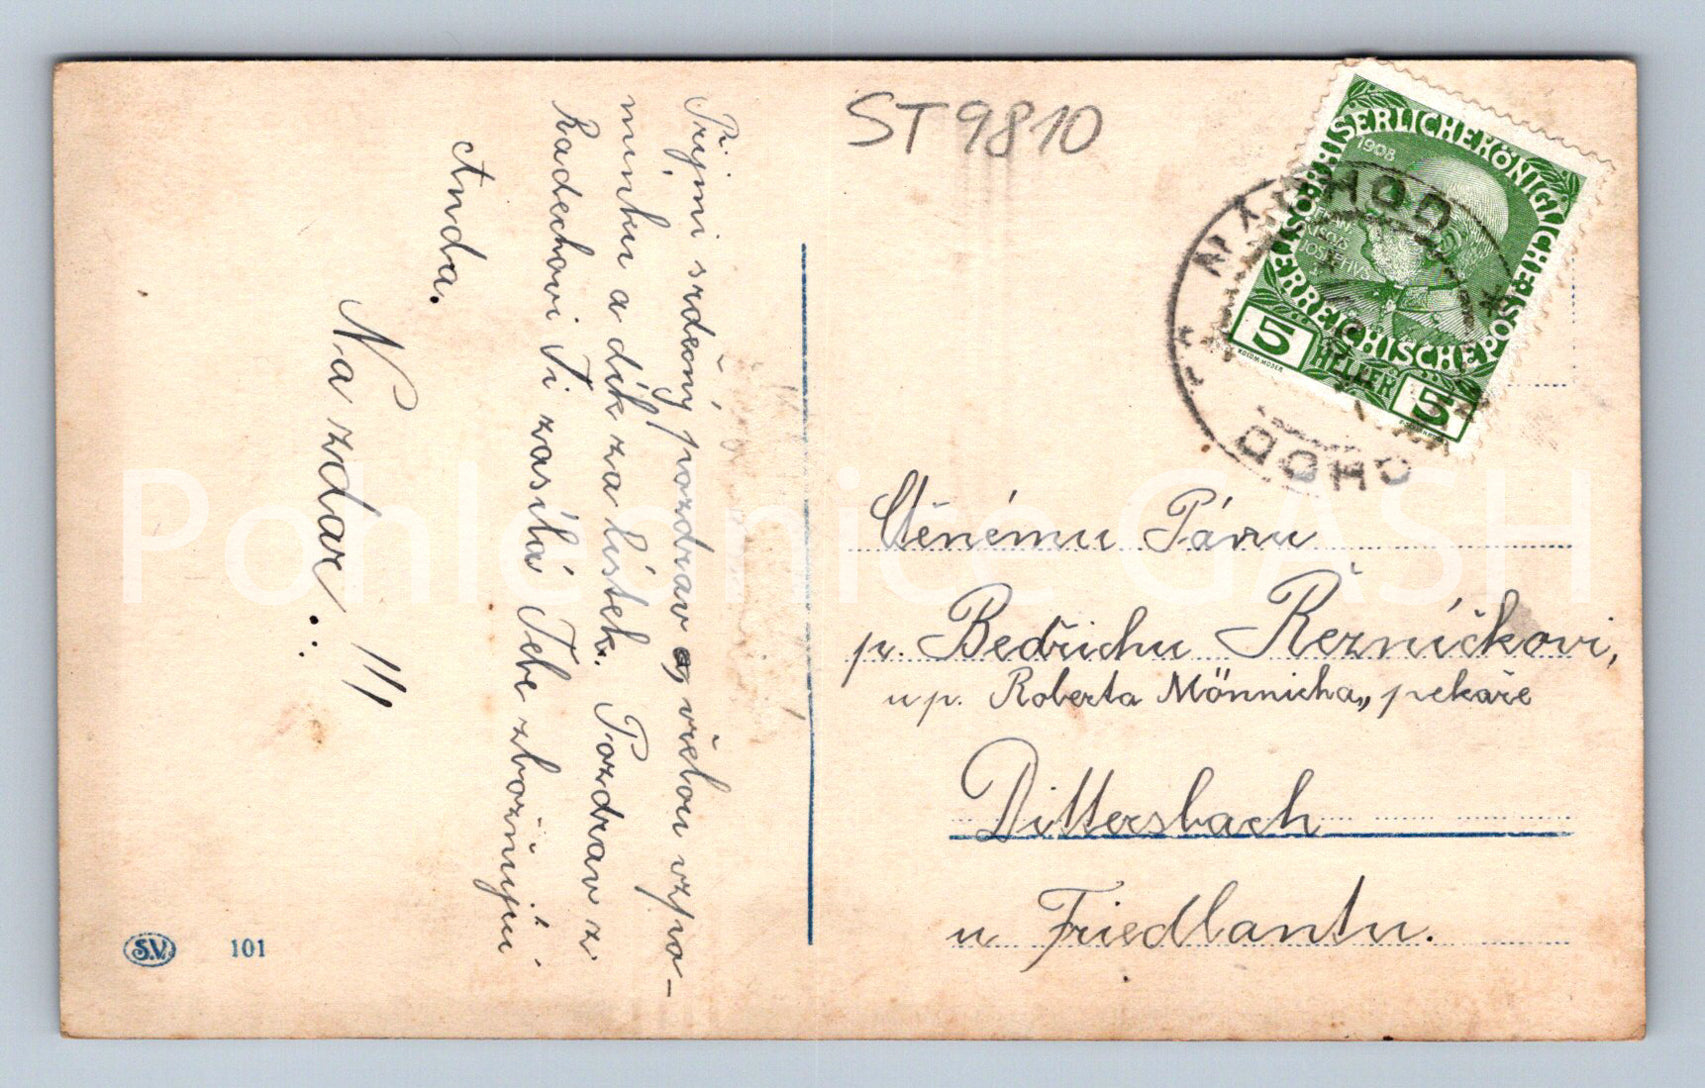 Př.
Přijmi srdečný pozdrav a vřelou vzpo-
mínku a dík za lístek. Pozdrav z
Radechovi Ti zasílá Tebe zbožňující
Anda.
Na zdar!!!
S.V. 101
ST9810
KAISERLICHE KÖNIGLICHE
ÖSTERREICHISCHE POST
1908
5 HELLER 5
NÁCHOD
Ctěnému Pánu
p. Bedřichu Řezníčkovi,
u p. Roberta Mönnicha, pekaře
Dittersbach
u Friedlantu.
Pohlednice GASH